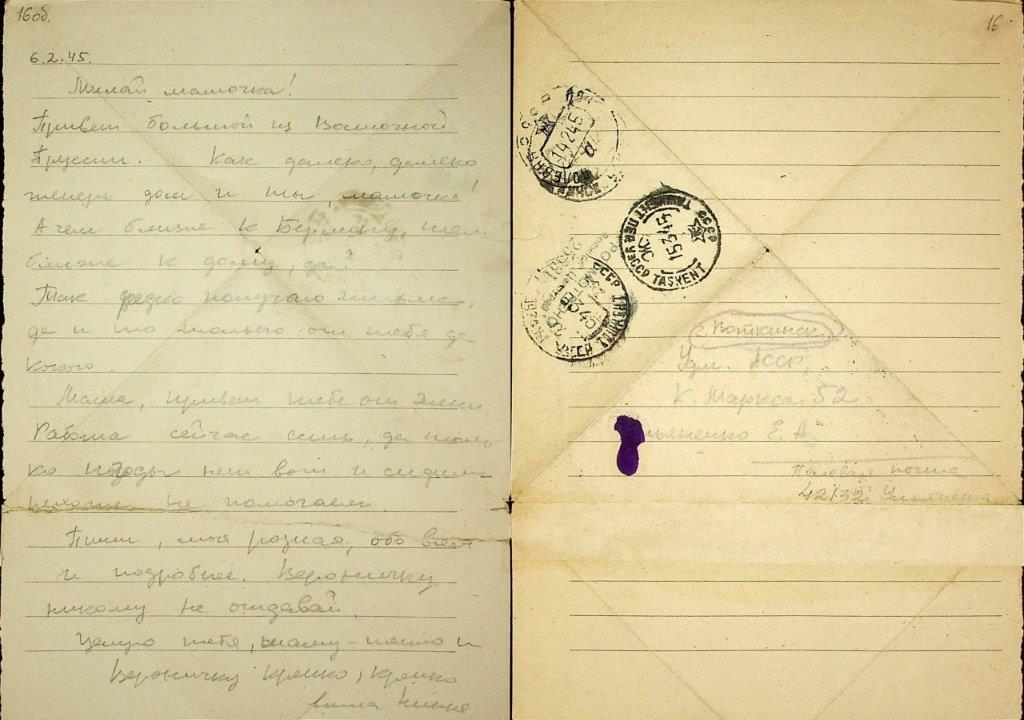 16об.
6.2.45.
Милая мамочка!
Привет большой из Восточной
Пруссии. Как далеко, далеко
теперь дом и ты, мамочка!
А чем ближе к Берлину, тем
ближе к дому, да?
Так редко получаю письма,
да и то только от тебя да
Мама, привет тебе от
Работа сейчас есть, да толь-
ко погоды нет вот и сидим
пехоте не помогаем.
Пиши, моя родная, обо всём
и подробнее. Вероничку
никому не отдавай.
Целую тебя, и
Вероничку крепко, крепко
ваша
16
СССР
14 2 45
ПОЛЕВАЯ
TASHKENT DER УзССР TASKENT
СССР
15 3 45
25531
г. Воткинск
Удм. АССР,
К. Маркса 52
Е. А.
Полевая почта
42132